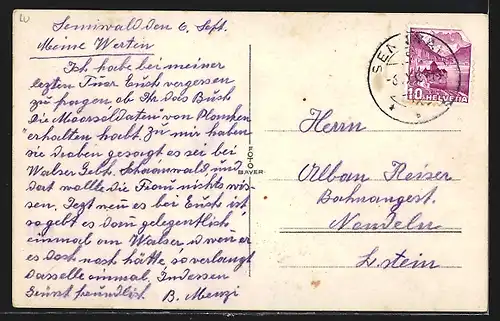 LU
Semiwald den 6. Sept.
Meine Werten
Ich habe bei meiner
letzten Tour Euch vergessen
zu fragen, ob Ihr das Buch
die Moorsoldaten von Planken
erhalten habt. Zu mir haben
sie droben gesagt es sei bei
Walser Gebh. Schaanwald, und
dort wollte die Frau nichts wis-
sen. Jezt wen es bei Euch ist
so gebt es dann gelegentlich
einmal an Walser, u. wen er
es doch noch hätte, so verlangt
dasselbe einmal. Indessen
Grüsst freundlich. B. Menzi
PHOTO
BAYER
SEN
10 HELVETIA
Herrn
Alban Reiser
Bahnangest.
Nendeln
L.stein